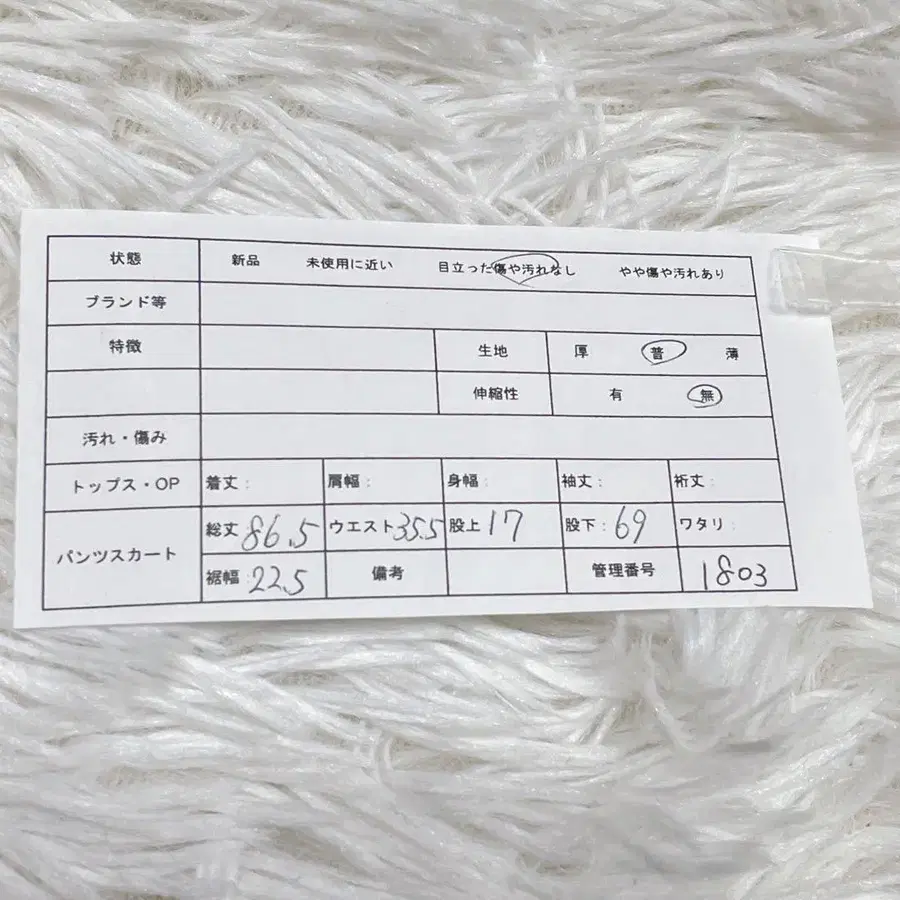 状態 新品 未使用に近い 目立った傷や汚れなし やや傷や汚れあり
ブランド等
特徴 生地 厚 普 薄
伸縮性 有 無
汚れ・傷み
トップス・OP 着丈: 肩幅: 身幅: 袖丈: 裄丈:
パンツスカート 総丈:86.5 ウエスト:35.5 股上:17 股下:69 ワタリ:
裾幅:22.5 備考 管理番号 1803